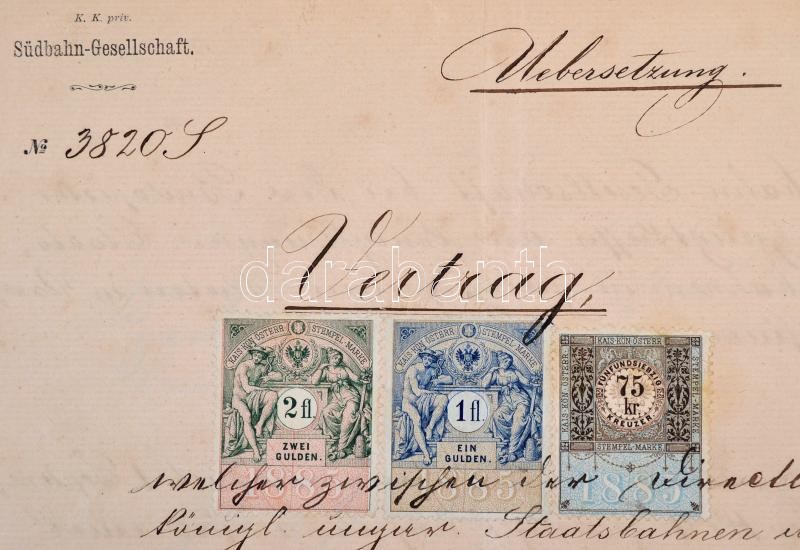 K. K. priv.
Südbahn-Gesellschaft.
Uebersetzung.
№ 3820 S
Vertrag,
darabanth
KAIS. KÖN. ÖSTERR. STEMPEL-MARKE
2 fl
ZWEI
GULDEN.
1885
KAIS. KÖN. ÖSTERR. STEMPEL-MARKE
1 fl
EIN
GULDEN.
1885
KAIS. KÖN. ÖSTERR.
FÜNFUNDSIEBZIG
75
kr.
KREUZER
STEMPEL-MARKE
1885
welcher zwischen der Directi
königl. ungar. Staatsbahnen u